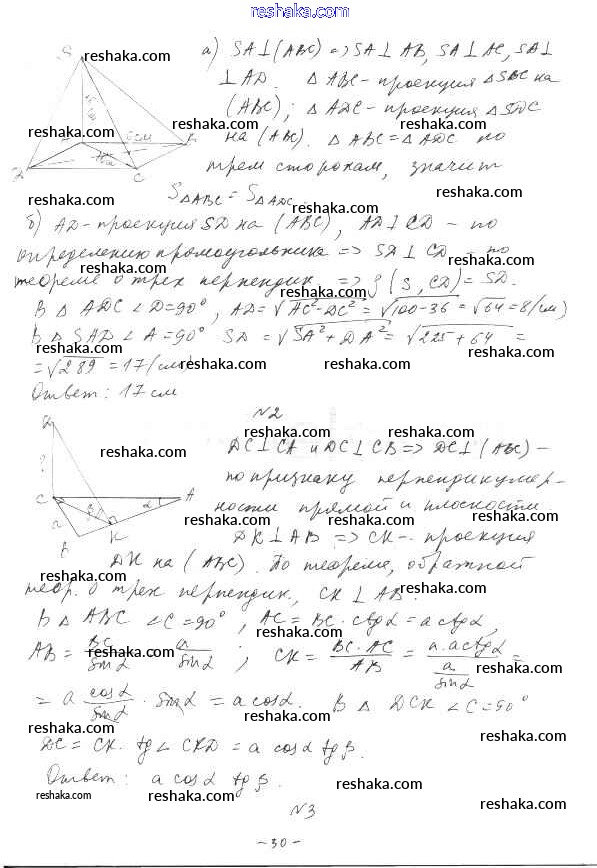 reshaka.com
а) SA⊥(ABC) => SA⊥AB, SA⊥AC, SA⊥
⊥AD. △ABC - проекция △SBC на
(ABC); △ADC - проекция △SDC
на (ABC). △ABC = △ADC по
трем сторонам, значит
S△ABC = S△ADC
б) AD - проекция SD на (ABC), AD⊥CD - по
определению прямоугольника => SD⊥CD по
теореме о трех перпендик. => ρ(S, CD) = SD.
В △ADC ∠D=90°, AD=√AC²-DC² = √100-36 = √64 = 8(см)
В △SAD ∠A=90° SD = √SA²+DA² = √225+64 =
= √289 = 17(см)
Ответ: 17 см
N2
DC⊥CA и DC⊥CB => DC⊥(ABC) -
по признаку перпендикуляр-
ности прямой и плоскости
DK⊥AB => CK - проекция
DK на (ABC). По теореме, обратной
теор. о трех перпендик, CK⊥AB.
В △ABC ∠C=90°, AC = BC·ctgα = a ctgα,
AB = BC/sinα a/sinα ; CK = BC·AC/AB = a·a ctgα/(a/sinα) =
= a cosα/sinα · sinα = a cosα. В △DCK ∠C=90°
DC = CK·tg∠CKD = a cosα tgβ.
Ответ: a cosα tgβ.
N3
-30-